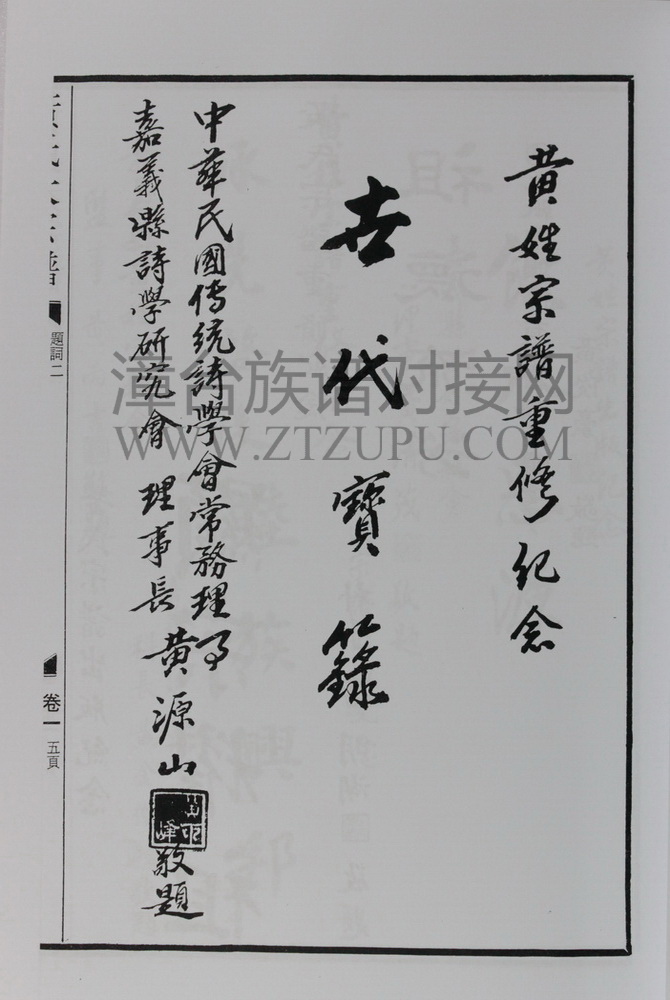 黄姓宗譜重修纪念
世代寶籙
中華民國傳統詩學會常務理事
嘉義縣詩學研究會 理事長 黄源山
敬題
題詞二
卷一
五頁
漳台族谱对接网
WWW.ZTZUPU.COM